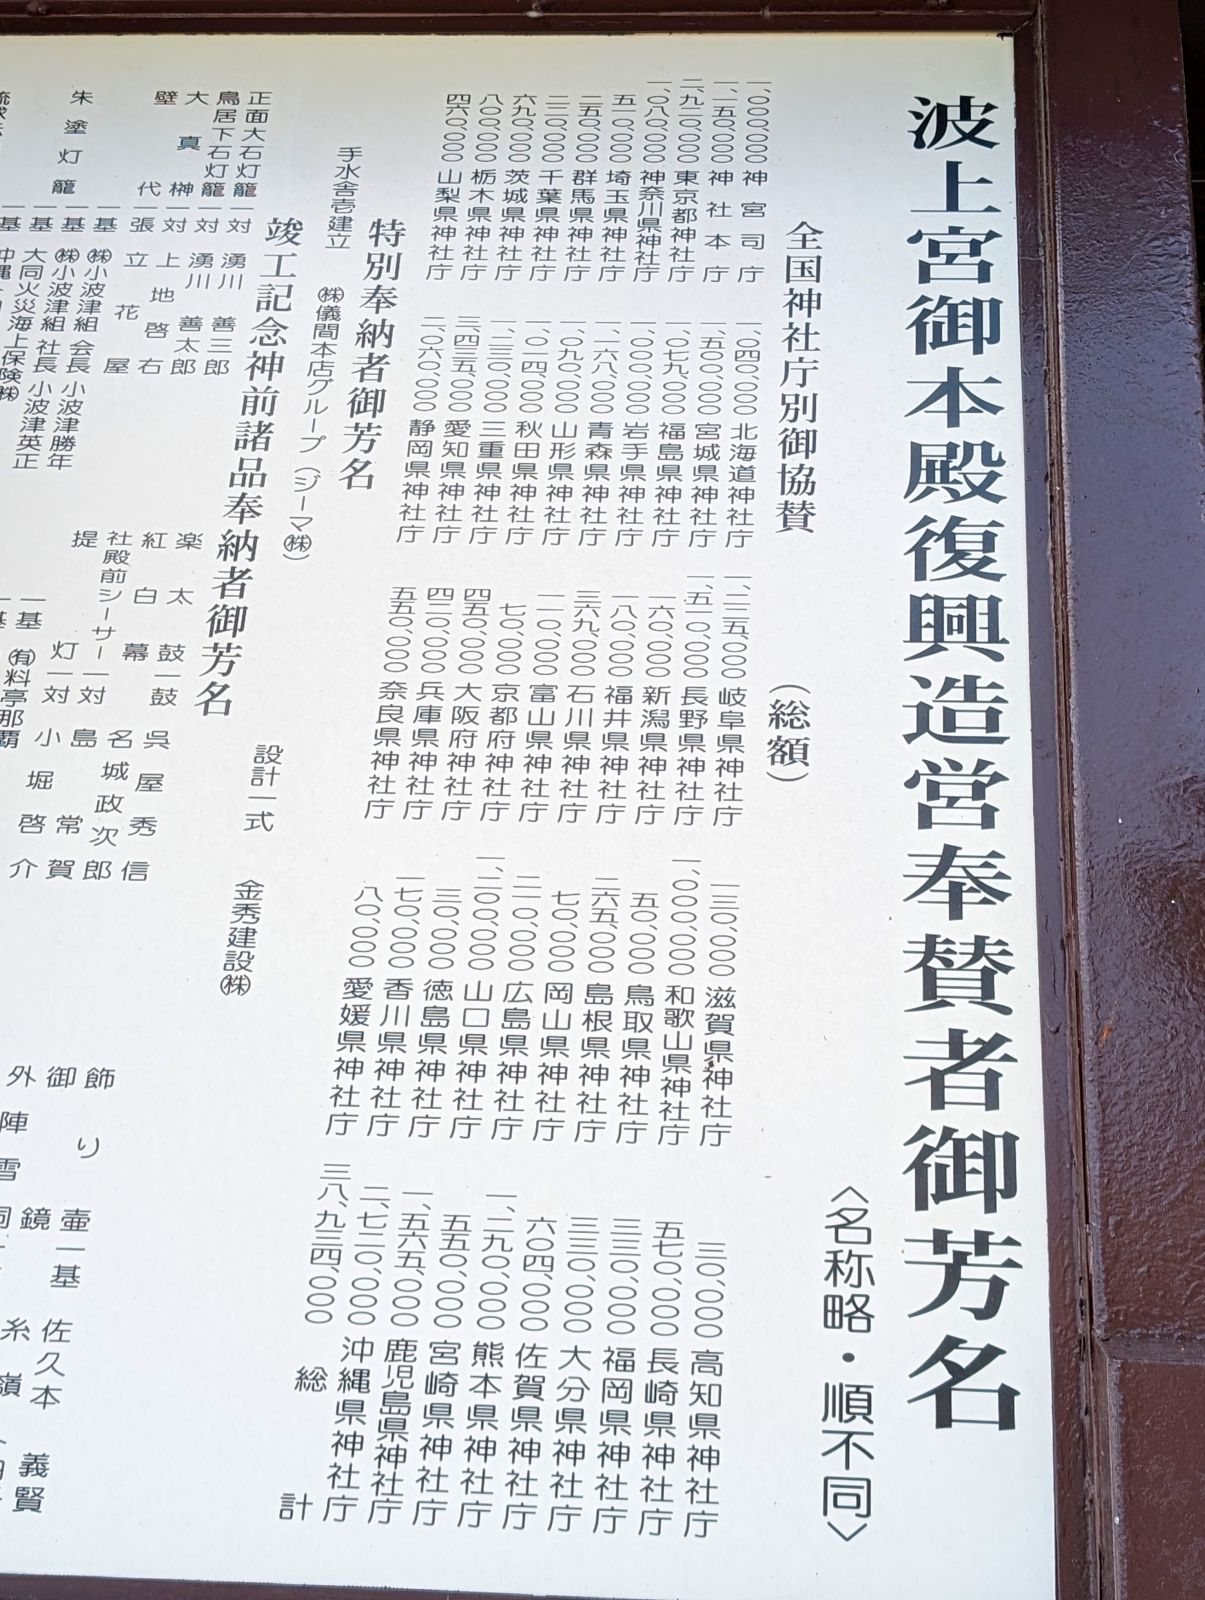 波上宮御本殿復興造営奉賛者御芳名
〈名称略・順不同〉
全国神社庁別御協賛(総額)
一、〇〇〇、〇〇〇 神宮司庁
一、一五〇、〇〇〇 神社本庁
二、九二〇、〇〇〇 東京都神社庁
一、〇八〇、〇〇〇 神奈川県神社庁
五一〇、〇〇〇 埼玉県神社庁
二五〇、〇〇〇 群馬県神社庁
二三〇、〇〇〇 千葉県神社庁
六九〇、〇〇〇 茨城県神社庁
八〇〇、〇〇〇 栃木県神社庁
四六〇、〇〇〇 山梨県神社庁
一、〇四〇、〇〇〇 北海道神社庁
一、五〇〇、〇〇〇 宮城県神社庁
一、〇七九、〇〇〇 福島県神社庁
一、〇〇〇、〇〇〇 岩手県神社庁
一、一六八、〇〇〇 青森県神社庁
一、〇九〇、〇〇〇 山形県神社庁
一、〇一四、〇〇〇 秋田県神社庁
一、二三〇、〇〇〇 三重県神社庁
三、四三五、〇〇〇 愛知県神社庁
二、〇六〇、〇〇〇 静岡県神社庁
一、二三五、〇〇〇 岐阜県神社庁
一、五一〇、〇〇〇 長野県神社庁
一六〇、〇〇〇 新潟県神社庁
一八〇、〇〇〇 福井県神社庁
三六九、〇〇〇 石川県神社庁
一一〇、〇〇〇 富山県神社庁
七〇、〇〇〇 京都府神社庁
四五〇、〇〇〇 大阪府神社庁
四二〇、〇〇〇 兵庫県神社庁
五五〇、〇〇〇 奈良県神社庁
一三〇、〇〇〇 滋賀県神社庁
一、〇〇〇、〇〇〇 和歌山県神社庁
五〇、〇〇〇 鳥取県神社庁
二六五、〇〇〇 島根県神社庁
七〇、〇〇〇 岡山県神社庁
二一〇、〇〇〇 広島県神社庁
一、二〇〇、〇〇〇 山口県神社庁
三〇、〇〇〇 徳島県神社庁
一七〇、〇〇〇 香川県神社庁
八〇、〇〇〇 愛媛県神社庁
三〇、〇〇〇 高知県神社庁
五七〇、〇〇〇 長崎県神社庁
三三〇、〇〇〇 福岡県神社庁
三三〇、〇〇〇 大分県神社庁
六〇四、〇〇〇 佐賀県神社庁
一、二九〇、〇〇〇 熊本県神社庁
五五〇、〇〇〇 宮崎県神社庁
一、五六五、〇〇〇 鹿児島県神社庁
二、七二〇、〇〇〇 沖縄県神社庁
三八、九三四、〇〇〇 総計
特別奉納者御芳名
手水舎壱建立 ㈱儀間本店グループ(ジーマ㈱)
設計一式 金秀建設㈱
竣工記念神前諸品奉納者御芳名
正面大石灯籠一対 湧川善三郎
鳥居下石灯籠一対 湧川善太郎
大真榊一対 上地啓右
壁代一張 立花屋
朱塗灯籠一基 ㈱小波津組会長小波津勝年
一基 ㈱小波津組社長小波津英正
一基 大同火災海上保険㈱
楽太鼓一鼓 呉屋秀信
紅白幕 名城政次郎
社殿前シーサー一対 島常賀
提灯一対 小堀啓介
一基 ㈲料亭那覇
飾り壷一基 佐久本義賢
御鏡
外陣雪洞